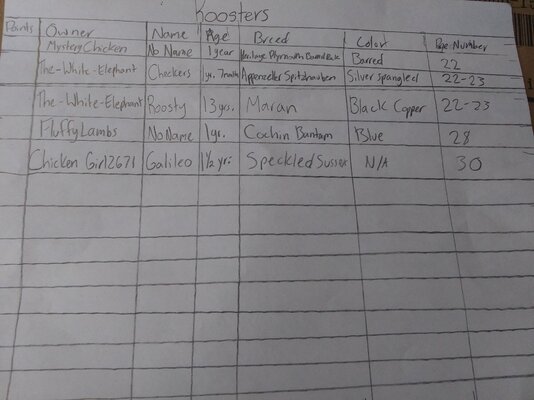 Roosters
Points Owner Name Age Breed Color Page Number
MysteryChicken No Name 1 year Heritage Plymouth Barred Rock Barred 22
The-White-Elephant Checkers 1yr. 7 months Appenzeller Spitzhauben Silver spangled 22-23
The-White-Elephant Roosty 13 yrs. Maran Black Copper 22-23
FluffyLambs No Name 1yr. Cochin Bantam Blue 28
Chicken Girl2671 Galileo 1½ yrs. Speckled Sussex N/A 30